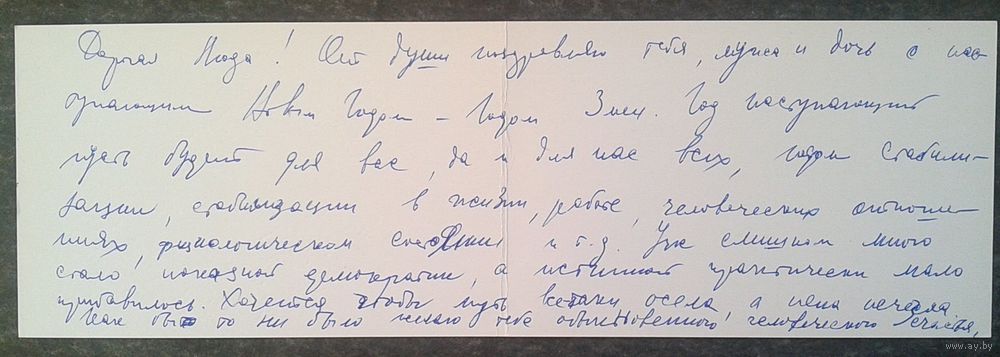 Дорогая Люда! От души поздравляю тебя, мужа и дочь с нас-
тупающим Новым Годом - Годом Змеи. Год наступающий
пусть будет для вас, да и для нас всех, годом стабили-
зации, стабилизации в жизни, работе, человеческих отноше-
ниях, физиологическом состоянии и т.д. Уж слишком много
стало показной демократии, а истинной практически мало
прибавилось. Хочется чтобы муть всё-таки осела а пена исчезла
Как бы то ни было желаю тебе обыкновенного человеческого счастья,
www.ay.by